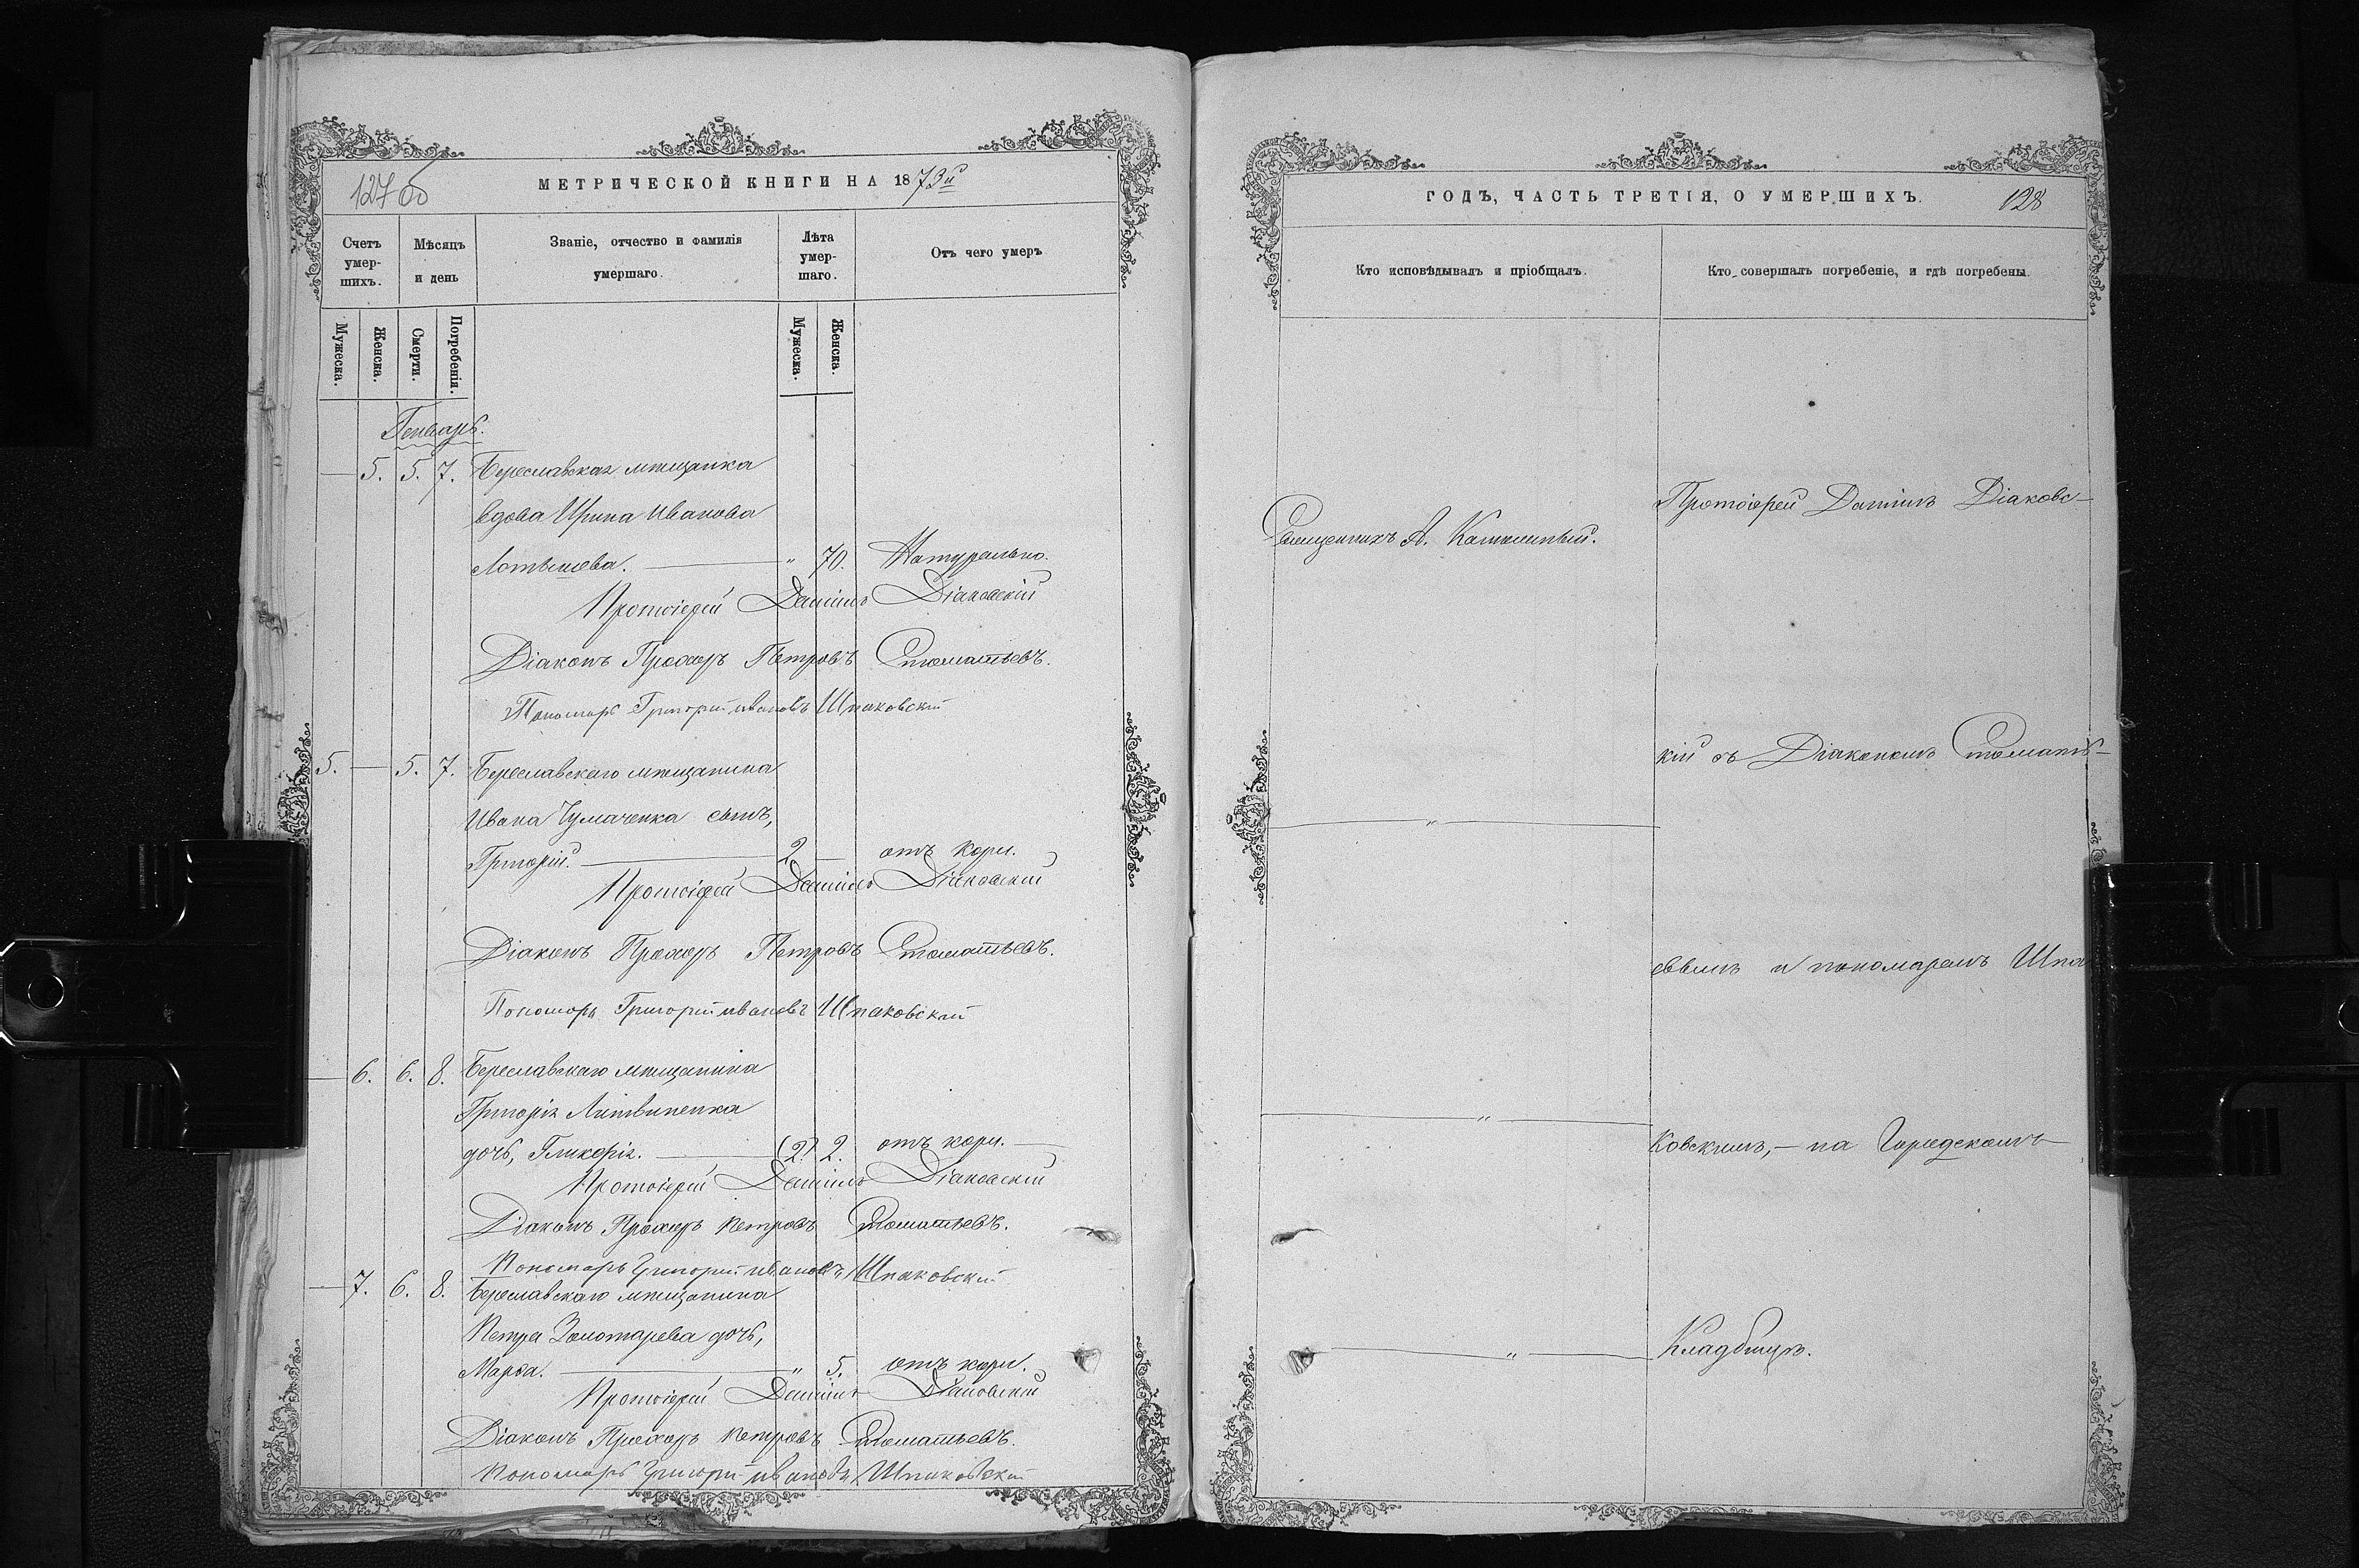 127 об
МЕТРИЧЕСКОЙ КНИГИ НА 1873й
Счетъ умер-шихъ.
Мѣсяцъ и день
Званіе, отчество и фамилія умершаго.
Лѣта умер-шаго.
Отъ чего умеръ
Мужеска.
Женска.
Смерти.
Погребенія.
Мужеска.
Женска.
Генварь.
— 5. 5. 7. Береславская мѣщанка
вдова Ирина Иванова
Лотышева. — " 70. Натурально.
Протоіерей Даніилъ Діаковскій
Діаконъ Прохоръ Петровъ Стоматьевъ.
Пономарь Григорій Ивановъ Шпаковскій
5. — 5. 7. Береславскаго мѣщанина
Ивана Чумаченка сынъ,
Григорій. — 2 — отъ кори.
Протоіерей Даніилъ Діаковскій
Діаконъ Прохоръ Петровъ Стоматьевъ.
Пономарь Григорій Ивановъ Шпаковскій
— 6. 6. 8. Береславскаго мѣщанина
Григорія Литвиненка
дочь, Гликерія. — (2) 2. отъ кори. —
Протоіерей Даніилъ Діаковскій
Діаконъ Прохоръ Петровъ Стоматьевъ.
Пономарь Григорій Ивановъ Шпаковскій
— 7. 6. 8. Береславскаго мѣщанина
Петра Золотарева дочь,
Марѳа. — " 5. отъ кори.
Протоіерей Даніилъ Діаковскій
Діаконъ Прохоръ Петровъ Стоматьевъ.
Пономарь Григорій Ивановъ Шпаковскій
ГОДЪ, ЧАСТЬ ТРЕТІЯ, О УМЕРШИХЪ.
128
Кто исповѣдывалъ и пріобщалъ.
Кто совершалъ погребеніе, и гдѣ погребены.
Протоіерей Даніилъ Діаковс-
Священникъ А.
кій съ Діакономъ Стомать-
— " —
евымъ и пономаремъ Шпа
— " —
ковскимъ, — на Городскомъ
— " —
Кладбищѣ.